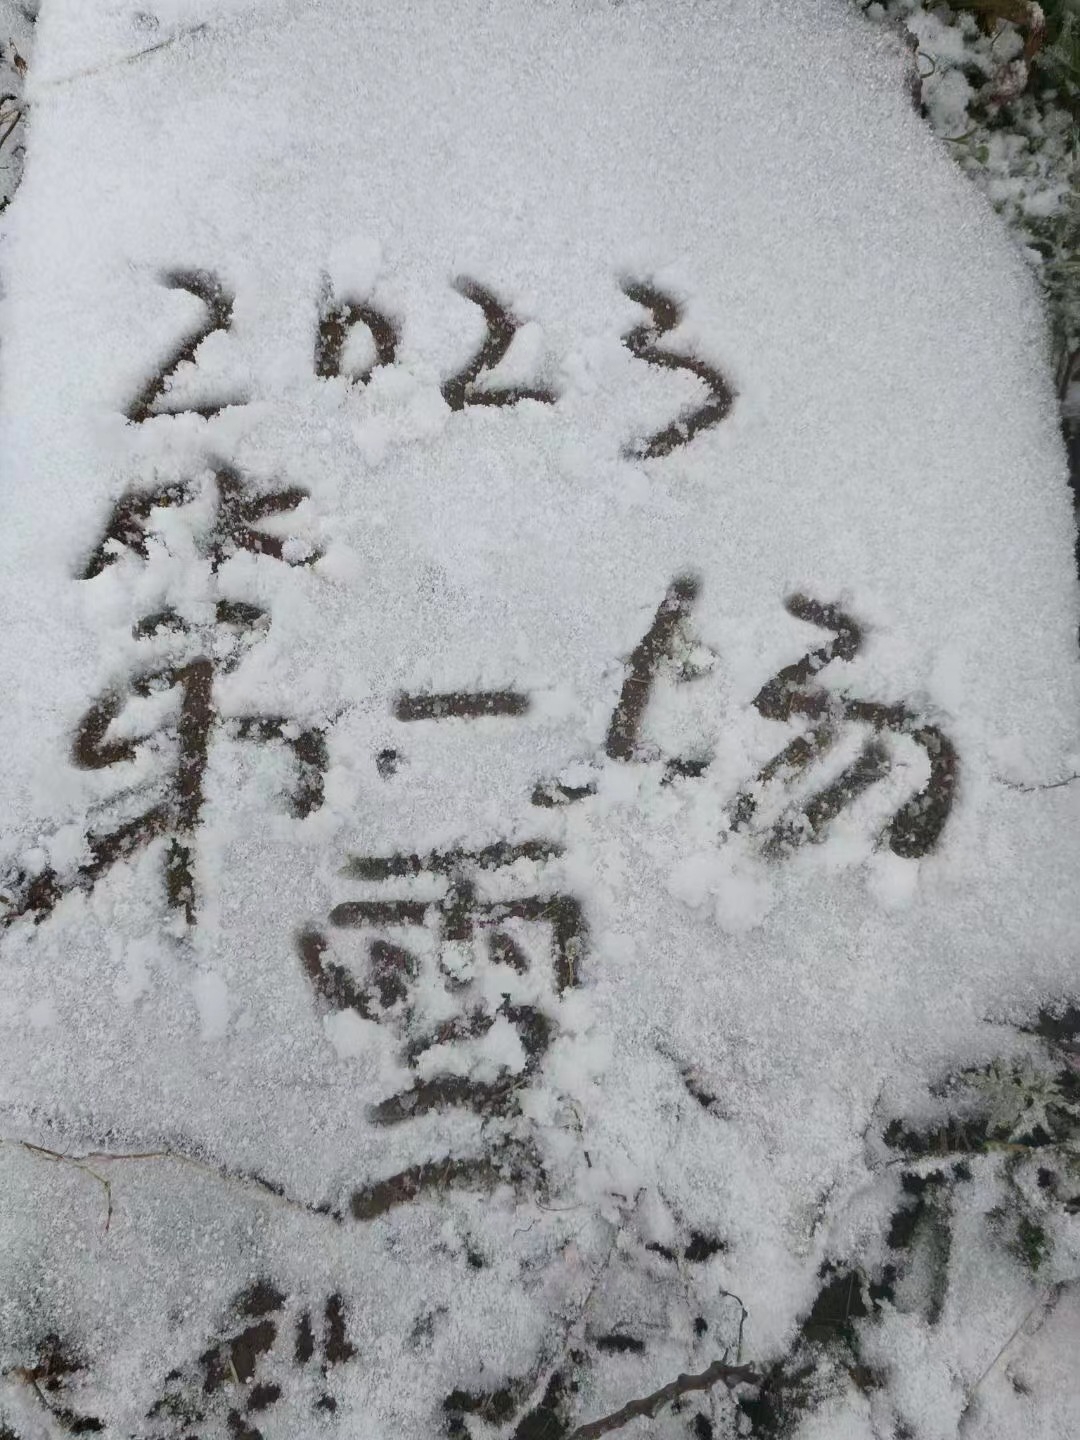 2023
第一场
雪